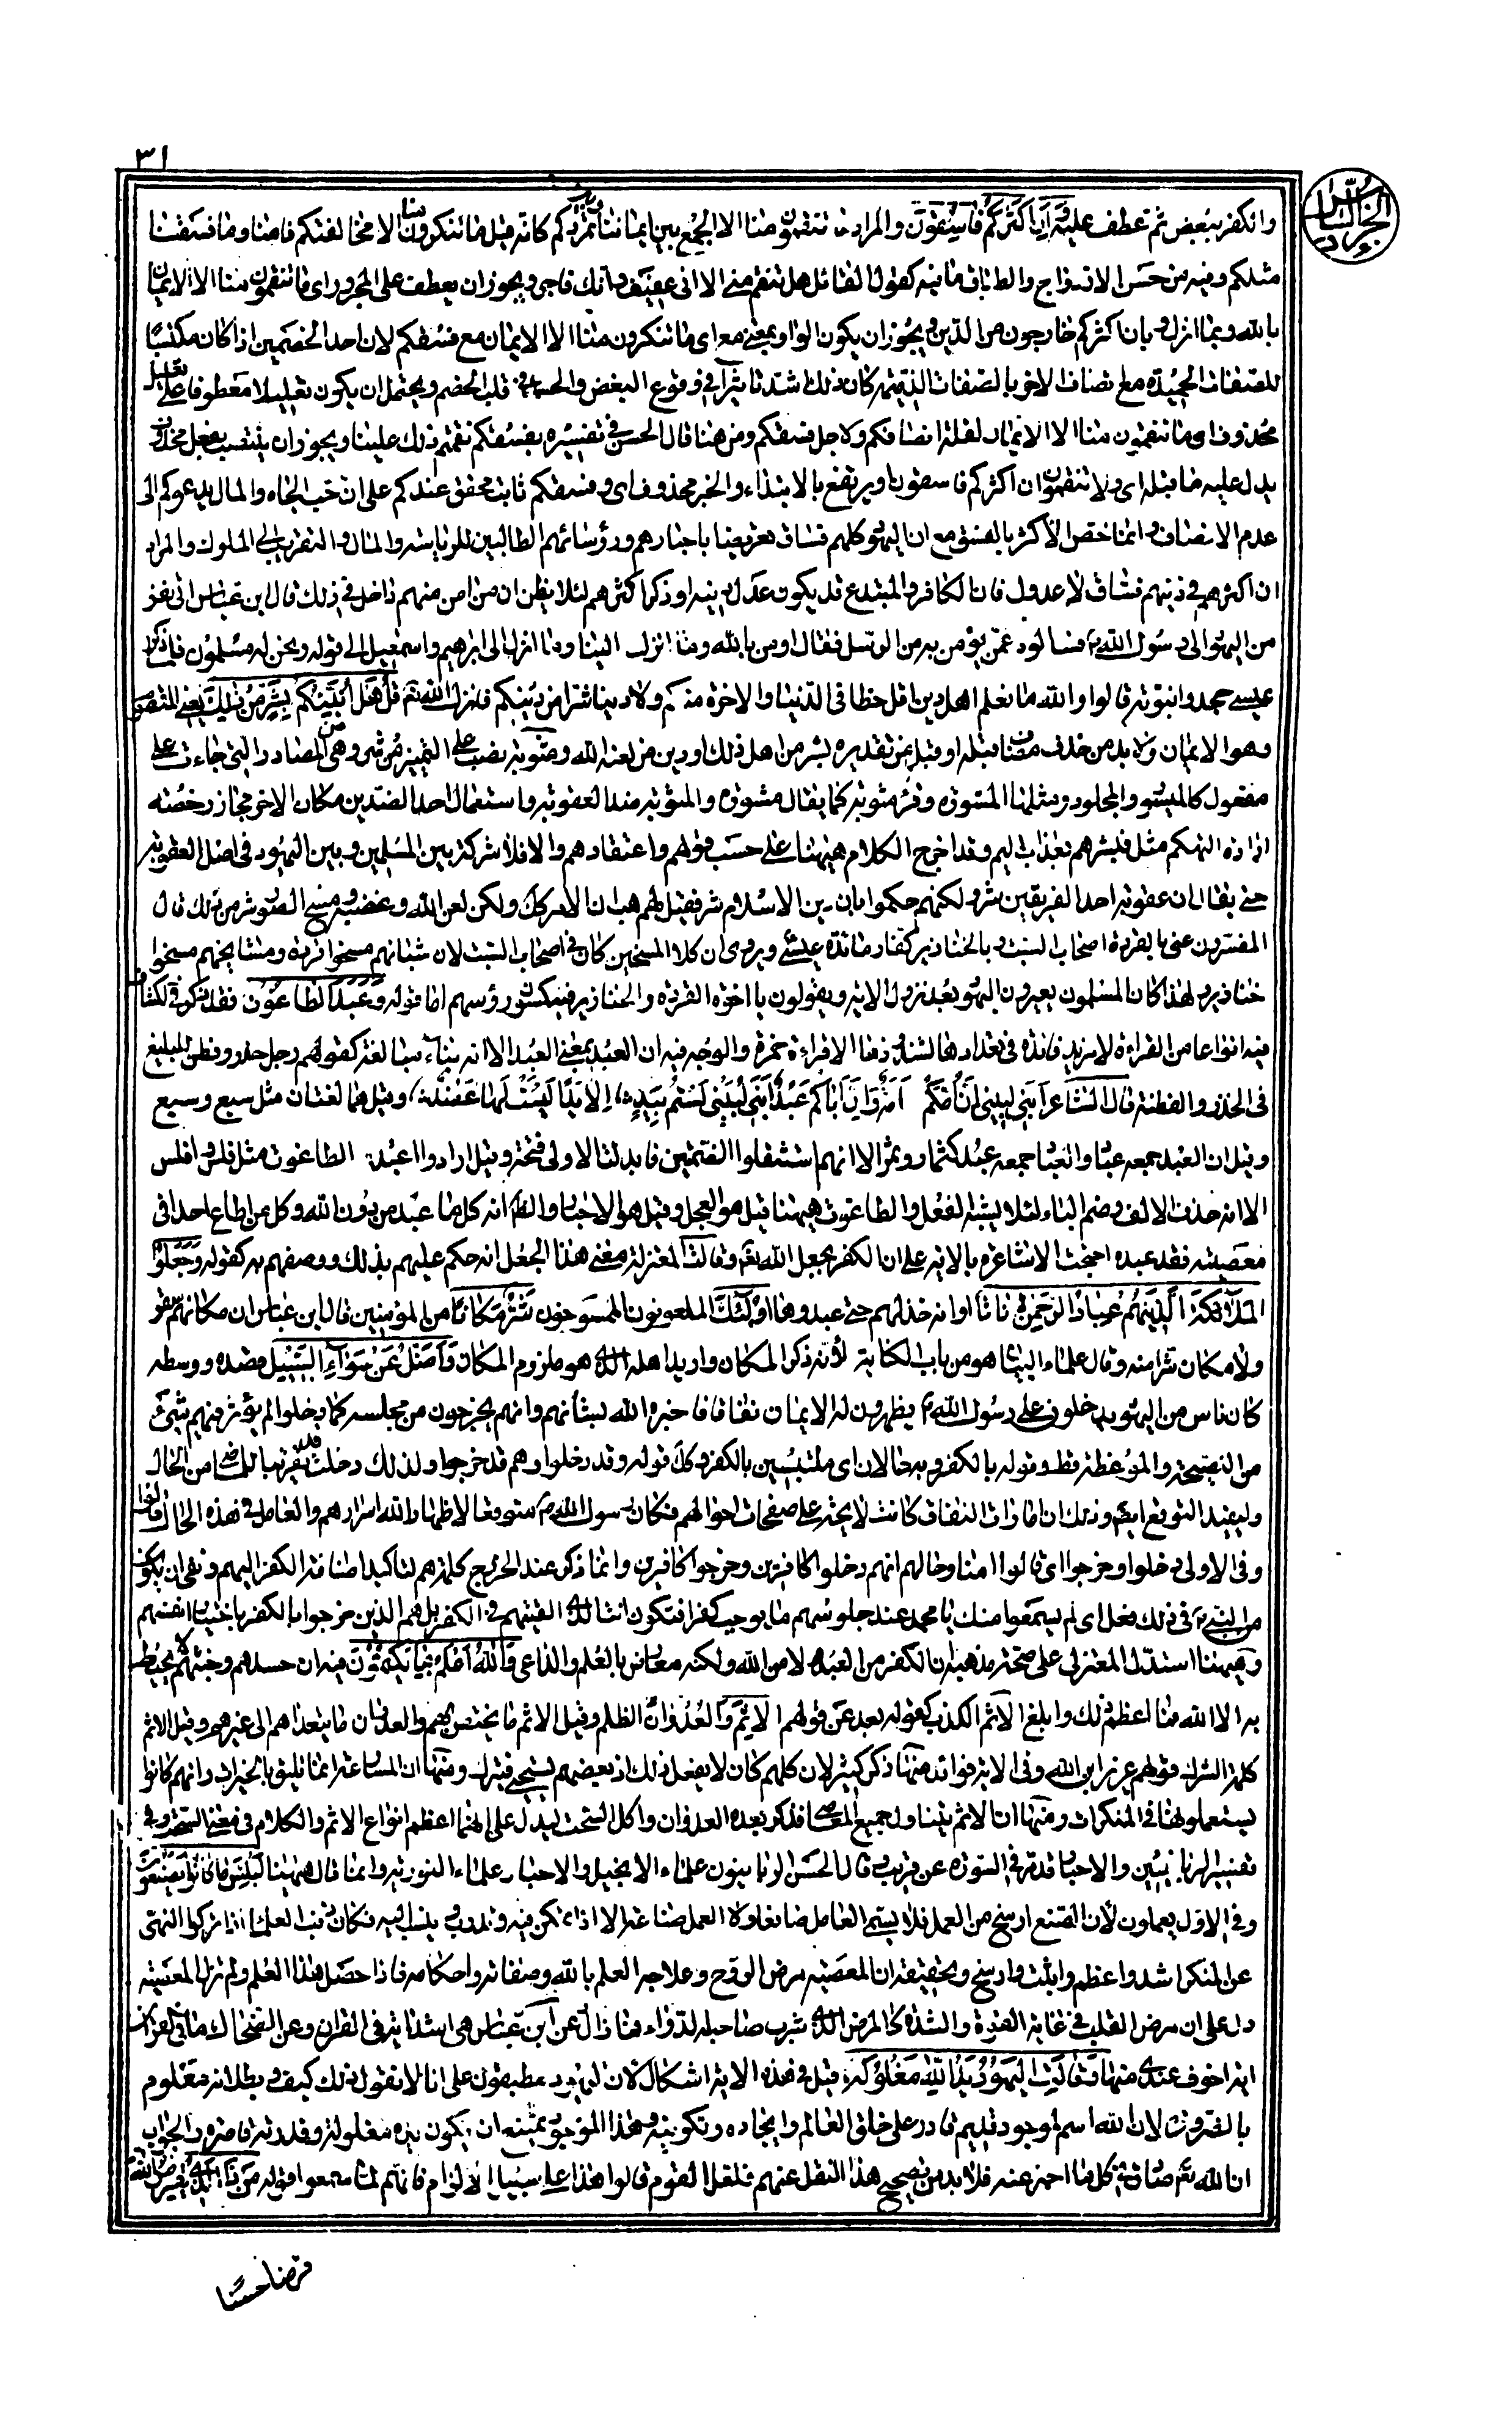 ٣١
الجزء السادس
والكفر ببعض ثم عطف عليه أن أكثركم فاسقون والمراد ما تنقمون منا الا الجمع بين ايماننا وبين تمردكم كانه قيل ما تنكرون منا الا مخالفتكم فامنا وما فسقنا
مثلكم وفيه من حسن الازدواج والطباق ما فيه كقول القائل هل تنقم مني الا اني عفيف وانك فاجر ويجوز ان يعطف على المجرور اى ما تنقمون منا الا الايمان
بالله وبما انزل وبان اكثركم خارجون من الدين ويجوز ان يكون الواو بمعنى مع اى ما تنكرون منا الا الايمان مع فسقكم لان احد الخصمين اذا كان مكتسبا
للصفات الحميدة مع اتصاف الاخر بالصفات الذميمة كان ذلك اشد تاثيرا في وقوع البغض والحسد في قلب الخصم ويحتمل ان يكون تعليلا معطوفا على تعليل
محذوف اى ما تنقمون منا الا الايمان لقلة انصافكم ولاجل فسقكم ومن هنا قال الحسن في تفسيره بفسقكم نقمتم ذلك علينا ويجوز ان ينتصب بفعل محذوف
يدل عليه ما قبله اى ولا تنقمون ان اكثركم فاسقون او يرتفع بالابتداء والخبر محذوف اى وفسقكم ثابت محقق عندكم على ان حب الجاه والمال يدعوكم الى
عدم الانصاف وانما خص الأكثر بالفسق مع ان اليهود كلهم فساق تعريضا باحبارهم ورؤسائهم الطالبين للرياسة والمال والتقرب الى الملوك والمراد
ان اكثرهم في دينهم فساق لا عدول فان الكافر والمبتدع قد يكون عدل دينه او ذكر اكثرهم لئلا يظن ان من امن منهم داخل في ذلك قال ابن عباس اتى نفر
من اليهود الى رسول الله ص فسالوه عمن يؤمن به من الرسل فقال اومن بالله وما انزل الينا وما انزل الى ابرهيم واسمعيل الى قوله ونحن له مسلمون فلما ذكر
عيسى جحدوا نبوته قالوا والله ما نعلم اهل دين اقل حظا فى الدنيا والاخرة منكم ولا دينا شرا من دينكم فانزل الله تعم قل هل أنبئكم بشر من ذلك يعنى المنقوم
وهو الايمان ولا بد من حذف مضاف قبله او قبل من تقديره بشر من اهل ذلك او دين من لعنه الله ومثوبة نصب على التميز من شر وهى من المصادر التى جاءت على
مفعول كالميسور والمجلود ومثلها المشورة وقرئ مثوبة كما يقال مشورة والمثوبة ضد العقوبة واستعمال احد الضدين مكان الاخر مجاز رخصته
ارادة التهكم مثل فبشرهم بعذاب اليم وقد اخرج الكلام ههنا على حسب قولهم واعتقادهم والا فلا شركة بين المسلمين وبين اليهود فى اصل العقوبة
حتى يقال ان عقوبة احد الفريقين شر ولكنهم حكموا بان دين الاسلام شر فقيل لهم هب ان الامر كك ولكن لعن الله وغضبه ومسخ الصور شر من ذلك قال
المفسرون عنى بالقردة اصحاب السبت وبالخنازير كفار مائدة عيسى ويروى ان كلا المسخين كان فى اصحاب السبت لان شبانهم مسخوا قردة ومشايخهم مسخوا
خنازير ولهذا كان المسلمون يعيرون اليهود بعد نزول الاية ويقولون يا اخوة القردة والخنازير فينكسون رؤسهم اما قوله وعبد الطاغوت فقد ذكر فى الكشاف
فيه انواعا من القراءة لا مزيد فائدة فى تعدادها لشذوذها الا قراءة حمزة والوجه فيه ان العبد بمعنى العبد الا انه بناء مبالغة كقولهم رجل حذر وفطن للبليغ
فى الحذر والفطنة قال الشاعر أبنى لبينى ان أمكم أمة وإن أباكم عبد أبنى لبينى لستم بيد إلا يدا ليست لها عضد وقيل هما لغتان مثل سبع وسبع
وقيل ان العبد جمعه عباد والعباد جمعه عبد كثمار وثمر الا انهم استثقلوا الضمتين فابدلت الاولى فتحة وقيل ارادوا اعبد الطاغوت مثل فلس وافلس
الا انه حذف الالف وضم الباء لئلا يشبه الفعل والطاغوت ههنا قيل هو العجل وقيل هو الاحبار والظ انه كل ما عبد من دون الله وكل من اطاع احدا فى
معصيته فقد عبده احتجت الاشاعرة بالاية على ان الكفر بجعل الله تعم وقالت المعتزلة معنى هذا الجعل انه حكم عليهم بذلك ووصفهم به كقوله وجعلوا
الملائكة الذين هم عباد الرحمن إناثا او انه خذلهم حتى عبدوها اولئك الملعونون الممسوخون شر مكانا من المؤمنين قال ابن عباس ان مكانهم سقر
ولا مكان شرا منه وقال علماء البيان هو من باب الكناية لأنه ذكر المكان واريد اهله الذى هو ملزوم المكان وأضل عن سواء السبيل قصده ووسطه
كان ناس من اليهود يدخلون على رسول الله ص يظهرون له الايمان نفاقا فاخبره الله بشأنهم وانهم يخرجون من مجلسه كما دخلوا لم يؤثر فيهم شئ
من النصيحة والموعظة قط وقوله بالكفر وبه حالان اى ملتبسين بالكفر وكك قوله وقد دخلوا وهم قد خرجوا ولذلك دخلت قد تقريبا للماضى من الحال
وليفيد التوقع ايضا وذلك ان امارات النفاق كانت لايحة على صفحات احوالهم فكان رسول الله ص متوقعا لاظهار الله اسرارهم والعامل فى هذه الحال قالوا
وفى الاولى دخلوا وخرجوا اى قالوا امنا وحالهم انهم دخلوا كافرين وخرجوا كافرين وانما ذكر عند الخروج كلمة هم لتاكيد اضافة الكفر اليهم ونفى ان يكون
من النبي ص فى ذلك فعل اى لم يسمعوا منك يا محمد عند جلوسهم ما يوجب كفرا فتكون انت الذى القيتهم فى الكفر بل هم الذين خرجوا بالكفر باختيار انفسهم
وههنا استدل المعتزلى على صحة مذهبه ان الكفر من العبد لا من الله ولكنه معارض بالعلم والداعى والله أعلم بما كانوا يكتمون فيه ان حسدهم وخبثهم لا يحيط
به الا الله منا اعظم ذلك وابلغ الاثم الكذب كقوله بعد عن قولهم الاثم والعدوان الظلم وقيل الاثم ما يختص بهم والعدوان ما يتعداهم الى غيرهم وقيل الاثم
كلمة الشرك قولهم عزير ابن الله وفى الاية فوائد منها ذكر كثير لان كلهم كان لا يفعل ذلك اذ بعضهم يستحيى فيترك ومنها ان المسارعة انما تليق بالخيرات وانهم كانوا
يستعملونها فى المنكرات ومنها ان الاثم يتناول جميع المعاصى فذكر بعده العدوان واكل السحت ليدل على انهما اعظم انواع الاثم والكلام فى معنى السحت وفى
تفسير الربانيين والاحبار قد مر فى السورة عن قريب قال الحسن الربانيون علماء الانجيل والاحبار علماء التورية وانما قال ههنا لبئس ما كانوا يصنعون
وفى الاول يعملون لأن الصنع ارسخ من العمل فلا يسمى العامل صانعا ولا العمل صناعة الا اذا تمكن فيه وتدرب وينسب اليه فكان ذنب العلماء اذا تركوا النهى
عن المنكر اشد واعظم واثبت وارسخ وتحقيقه ان المعصية مرض الروح وعلاجه العلم بالله وصفاته واحكامه فاذا حصل هذا العلم ولم تزل المعصية
دل على ان مرض القلب فى غاية القوة والشدة كالمرض الذى شرب صاحبه الدواء فما زال عن ابن عباس هى اشد اية فى القران وعن الضحاك ما فى القران
اية اخوف عندى منها وقالت اليهود يد الله مغلولة قيل فى هذه الاية اشكال لأن اليهود مطبقون على انا لا نقول ذلك كيف وبطلانه معلوم
بالضرورة لان الله اسم لموجود قديم قادر على خلق العالم وايجاده وتكوينه وهذا الموجود يمتنع ان يكون يده مغلولة وقدرته قاصرة والجواب
ان الله تعم صادق فى كل ما اخبر عنه فلا بد من تصحيح هذا النقل عنهم فلعل القوم قالوا هذا على سبيل الالزام فانهم لما سمعوا قوله من ذا الذى يقرض الله
قرضا حسنا